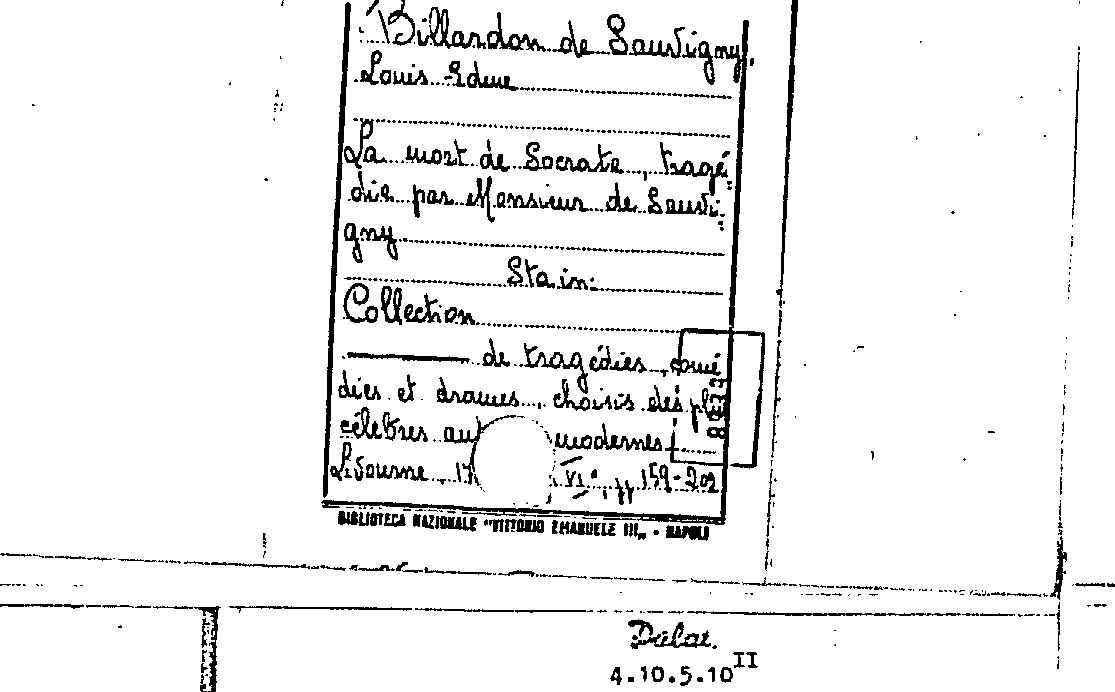 Billardon de Sauvigny,
Louis Edme
La mort de Socrate, tragé=
die par Monsieur de Sauvi=
gny
Sta in:
Collection
de tragédies, comé
dies et drames, choisis des plus
célèbres aut modernes
Livourne, 17 VI°, pp 159-202
BIBLIOTECA NAZIONALE "VITTORIO EMANUELE III„ - NAPOLI
4.10.5.10 II